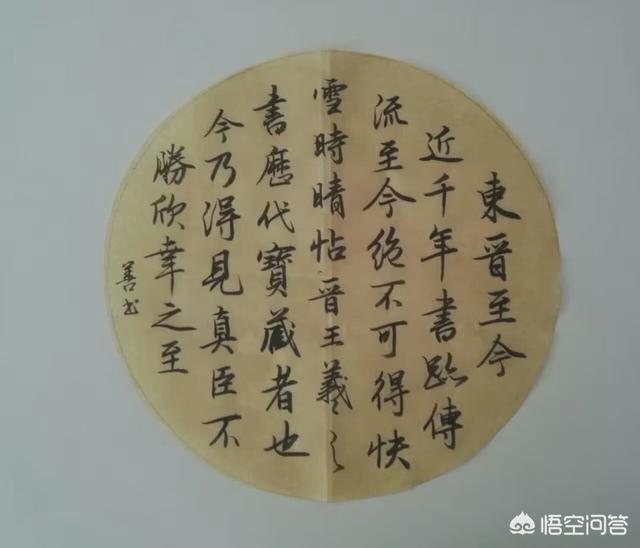 東晉至今
近千年書蹟傳
流至今絶不可得快
雪時晴帖晉王羲之
書歷代寶藏者也
今乃得見真臣不
勝欣幸之至
善书
悟空问答